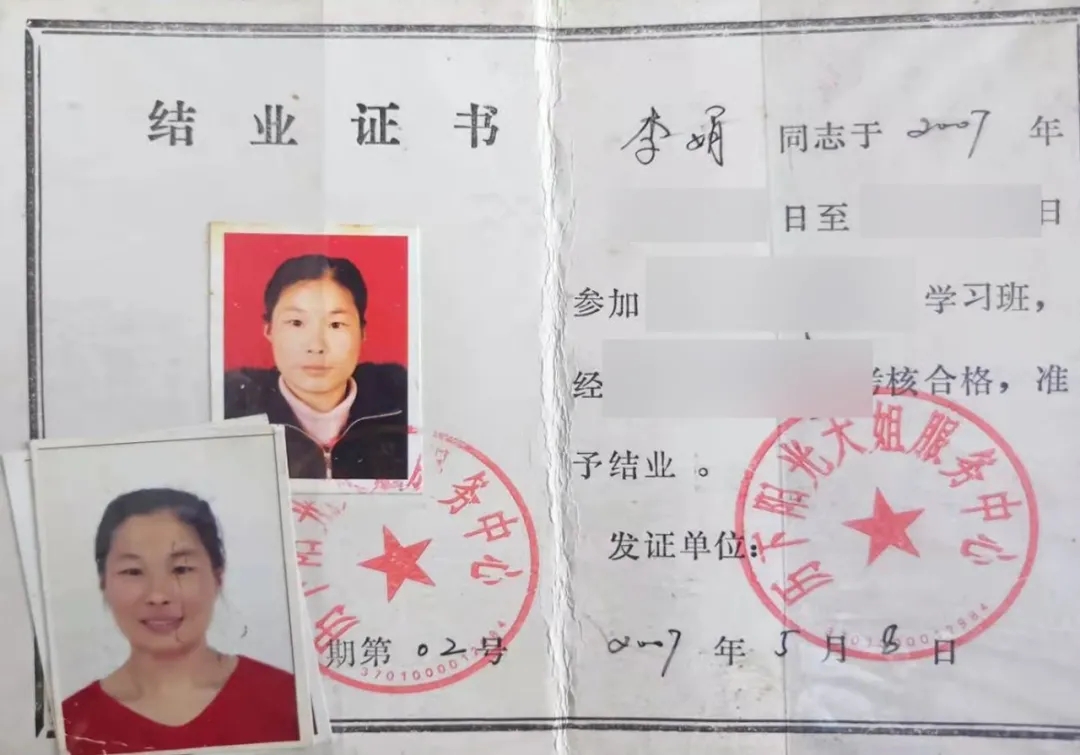 结业证书
期第02号
李娟 同志于2007年
日至 日
参加 学习班，
经 考核合格，准
予结业。
发证单位：
2007年5月8日
务中心
历下阳光大姐服务中心